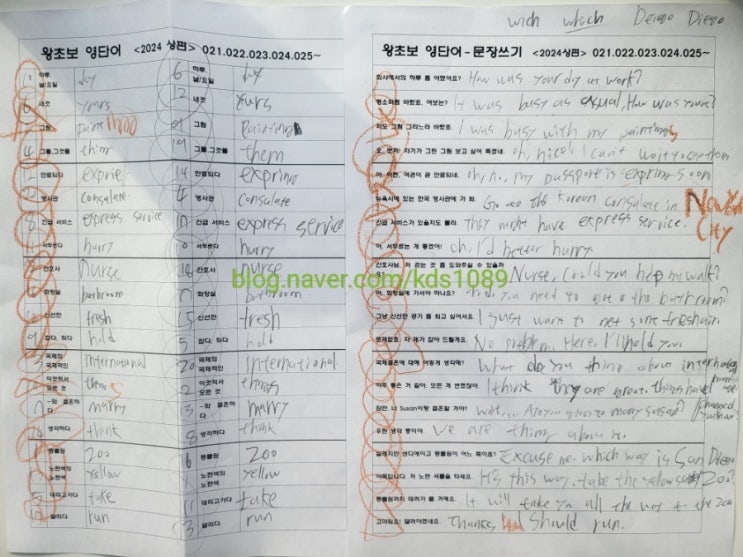 wich which Deigo Diego
왕초보 영단어 <2024 상편> 021.022.023.024.025~
하루 날/요일 day 6 하루 날/요일
네것 yours 2 네것 yours
그림 그림 painting
4 그들,그것들 them 19 그들,그것들 them
12 만료되다 expire 14 만료되다
영사관 consulate 4 영사관 consulate
긴급 서비스 express service 긴급 서비스 express service
서두르다 hurry 10 서두르다 hurry
간호사 nurse 18 간호사 nurse
화장실 bathroom 화장실 bathroom
신선한 fresh 15 신선한 fresh
9 잡다, 쥐다 hold 5 잡다, 쥐다 hold
국제의 국제적인 international 20 국제의 국제적인 international
이것저것 모든 것 things 2 이것저것 모든 것 things
~와 결혼하다 marry 13 ~와 결혼하다 marry
생각하다 think 8 생각하다 think
동물원 zoo 동물원 zoo
노란색의 노란색 yellow 노란색의 노란색 yellow
데리고가다 take 11 데리고가다 take
달리다 run 3 달리다 run
blog.naver.com/kds1089
왕초보 영단어 - 문장쓰기 <2024상편> 021.022.023.024.025~
회사에서의 하루 좀 어땠어요? How was your day at work?
평소처럼 바빴죠, 여보는? It was busy as How was yours?
저도 그림 그리느라 바빴죠. I was busy with my paintings
오, 자기가 그린 그림 보고 싶어 죽겠네. I can't wait to see them
아, 이런, 여권이 곧 만료되네. oh, no, my passport is soon
뉴욕시에 있는 한국 영사관에 가 봐. Go to the Korean consulate in New York City
긴급 서비스가 있을지도 몰라. They might have express service.
아, 서두르는 게 좋겠어! oh, I'd better hurry
간호사님, 저 걷는 것 좀 도와주실 수 있을까요? Nurse, Could you help me walk?
어, 화장실에 가셔야 하나요? you need to go to the bathroom?
그냥 신선한 공기 좀 쐬고 싶어서요. I just want to get some fresh air
문제없죠. 자 제가 잡아 드릴게요. No problem. Here, I'll hold you
국제결혼에 대해 어떻게 생각해? What do you think about international
아주 좋은 거 같아. 모든 게 변했잖아. I think they are great. things have
잠깐, 너 Susan이랑 결혼할 거야? Are you going to marry
우린 생각 중이야. We are about it.
실례지만 샌디에이고 동물원이 어느 쪽이죠? Excuse me. which way is San Diego Zoo?
이쪽입니다. 저 노란 셔틀을 타세요. It's this way. take the yellow
동물원까지 데려가 줄 거예요. It will take ya all the way to the zoo
고마워요! 달려야겠네요. Thanks should run.